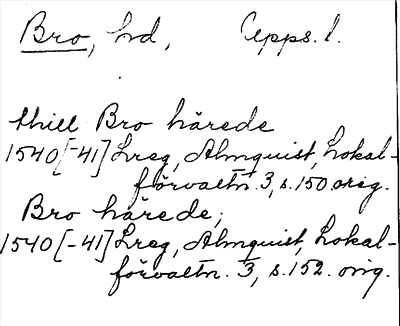 Bro, hd, Upps. l.
thill Bro härede
1540[-41] Lreg, Almquist, Lokal-
förvaltn. 3, s. 150 orig.
Bro härede,
1540[-41] Lreg, Almquist, Lokal-
förvaltn. 3, s. 152. orig.